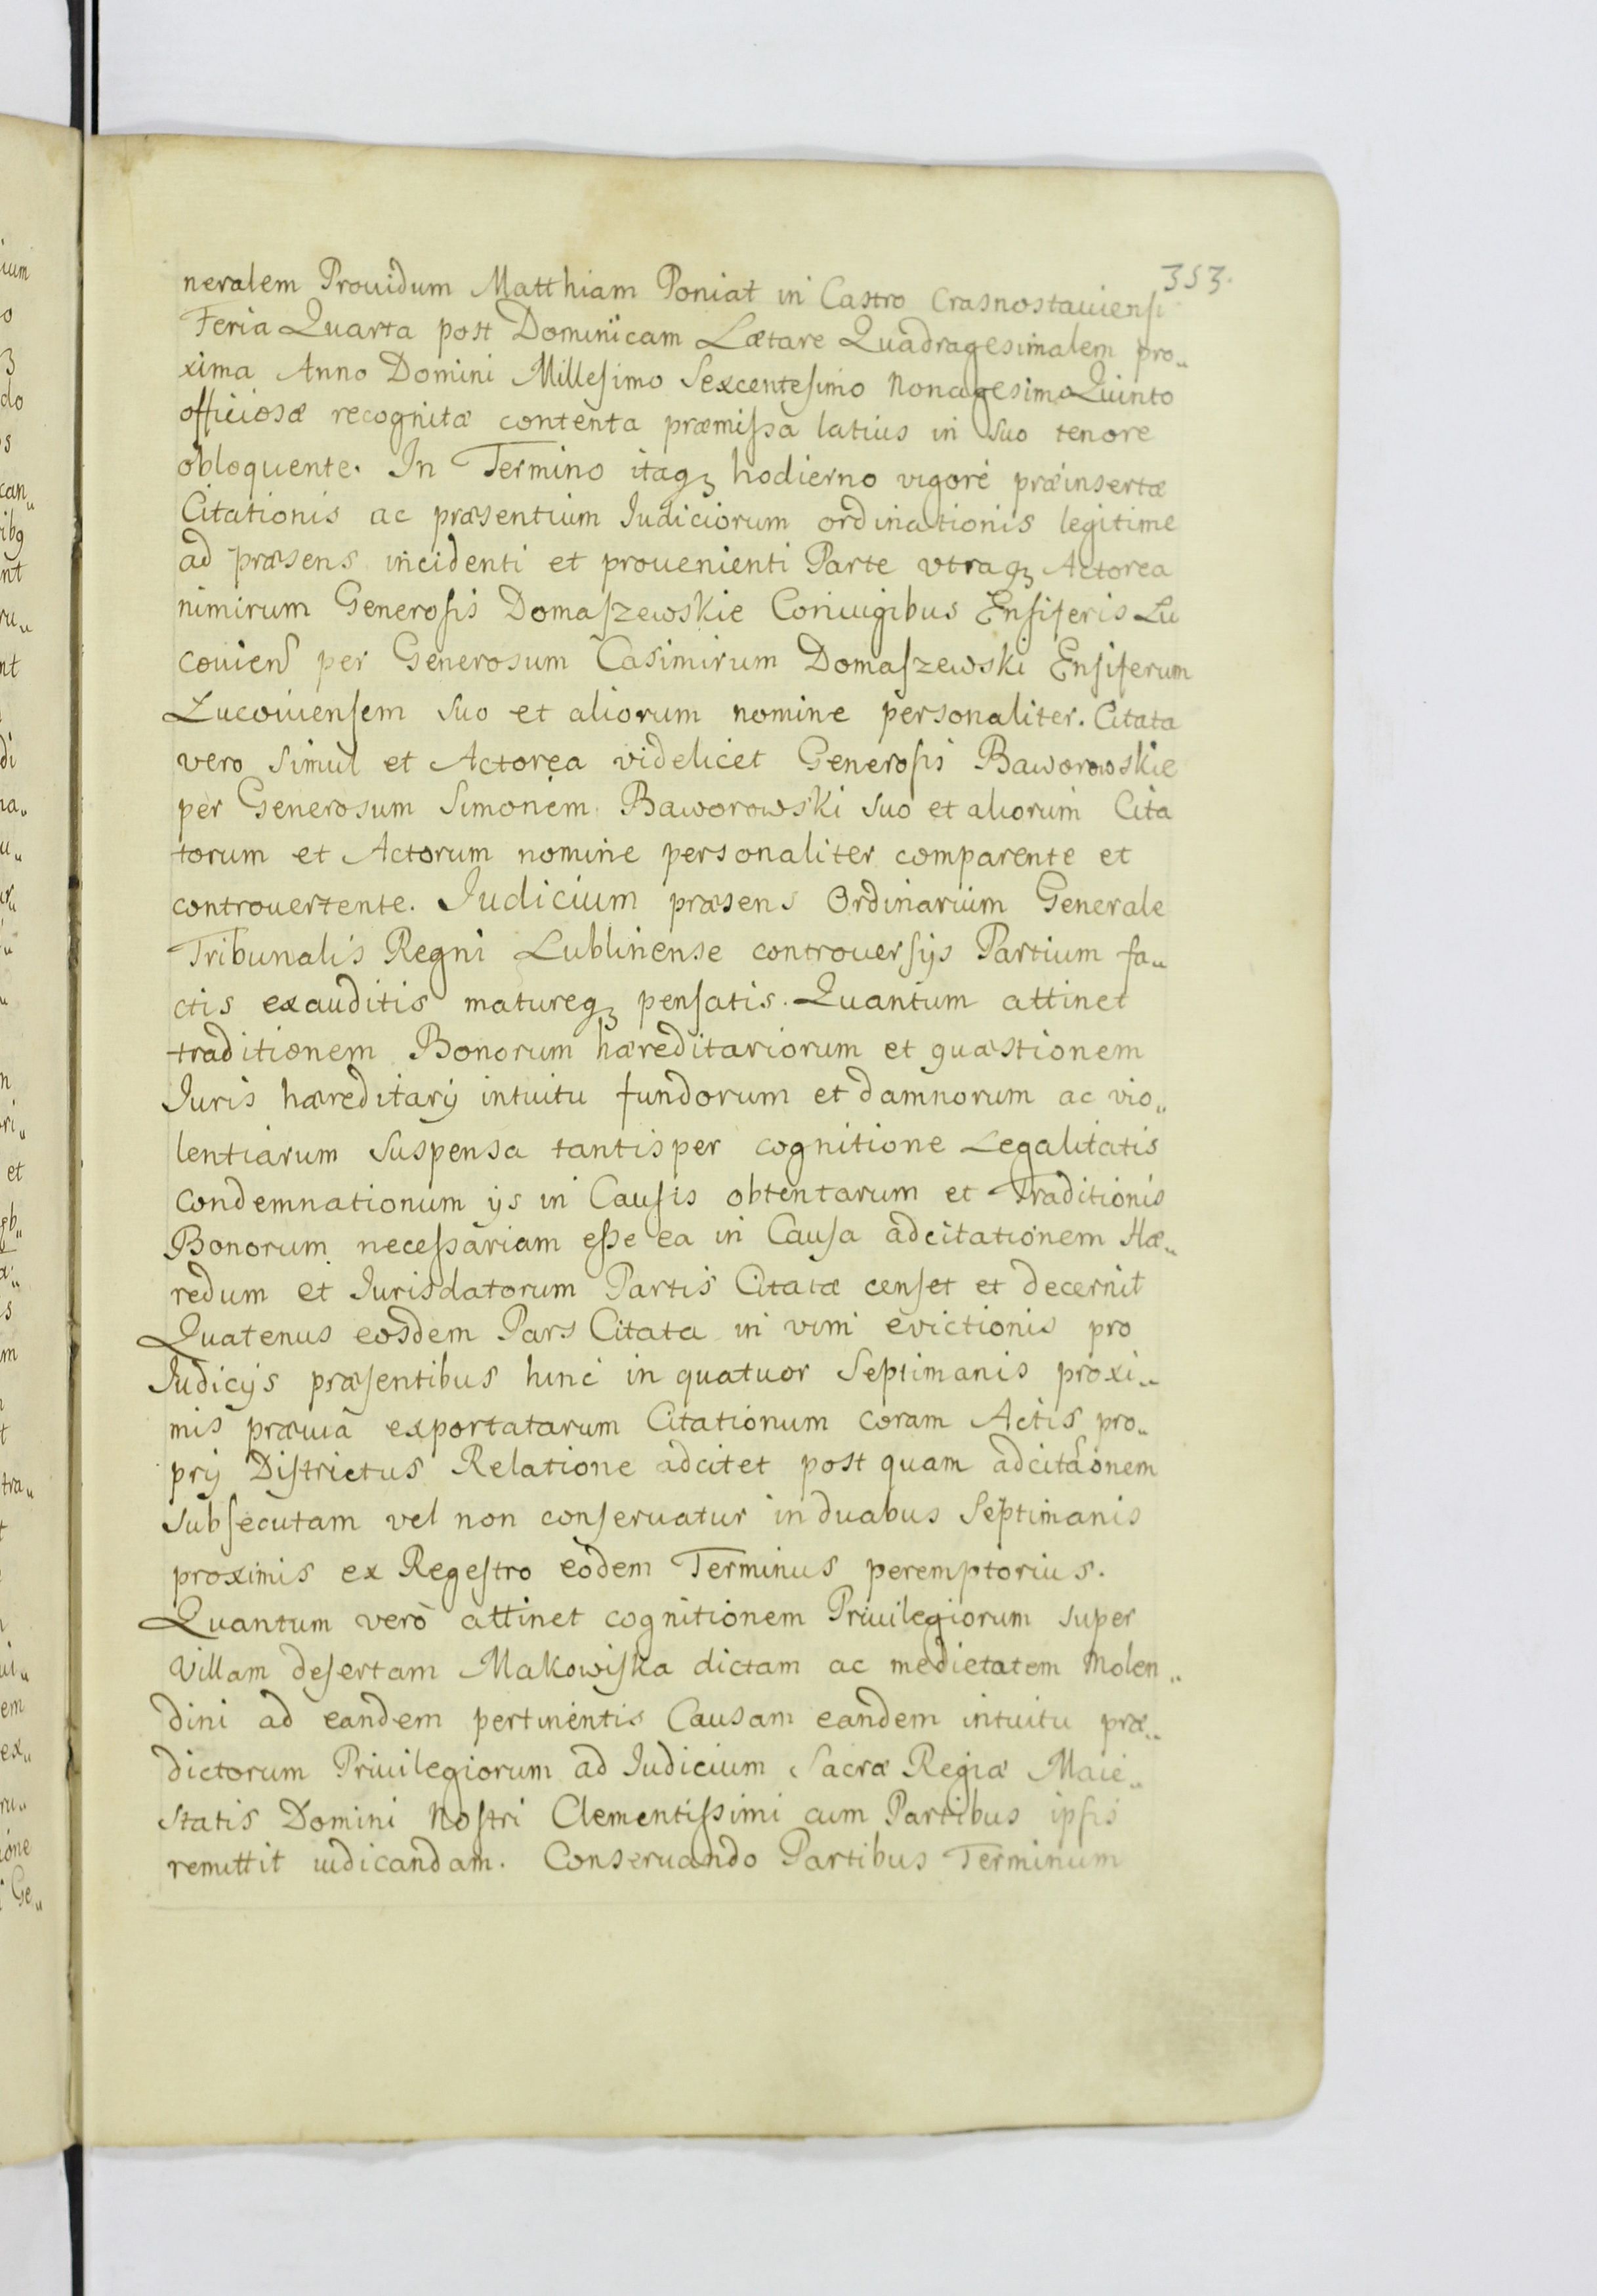 353.
neralem Prouidum Matthiam Poniat in Castro Crasnostauiensi
Feria Quarta post Dominicam Lætare Quadragesimalem pro„
xima Anno Domini Millesimo Sexcentesimo Nonagesimo Quinto
officiosæ recognitæ contenta præmissa latius in suo tenore
obloquente. In Termino itaqꝫ hodierno vigore præinsertæ
Citationis ac præsentium Iudiciorum ordinationis legitime
ad præsens incidenti et prouenienti Parte vtraqꝫ Actorea
nimirum Generosis Domaszewskie Coniugibus Ensiferis Lu
couiens per Generosum Casimirum Domaszewski Ensiferum
Lucouiensem suo et aliorum nomine personaliter. Citata
vero simul et Actorea videlicet Generosis Baworowskie
per Generosum Simonem Baworowski suo et aliorum Cita
torum et Actorum nomine personaliter comparente et
controuertente. Iudicium præsens Ordinarium Generale
Tribunalis Regni Lublinense controuersijs Partium fa„
ctis exauditis matureqꝫ pensatis. Quantum attinet
traditionem Bonorum hæreditariorum et quæstionem
Iuris hæreditarij intuitu fundorum et damnorum ac vio„
lentiarum suspensa tantisper cognitione Legalitatis
condemnationum ijs in Causis obtentarum et Traditionis
Bonorum necessariam esse ea in Causa adcitationem Hæ„
redum et Iurisdatorum Partis Citatæ censet et decernit
Quatenus eosdem Pars Citata in vim evictionis pro
Iudicijs præsentibus hinc in quatuor Septimanis proxi„
mis præuia exportatarum Citationum coram Actis pro„
prij Districtus Relatione adcitet post quam adcitaonem
subsecutam vel non conseruatur in duabus Septimanis
proximis ex Regestro eodem Terminus peremptorius.
Quantum verò attinet cognitionem Priuilegiorum super
Villam desertam Makowiska dictam ac medietatem Molen„
dini ad eandem pertinentis Causam eandem intuitu præ„
dictorum Priuilegiorum ad Iudicium Sacræ Regiæ Maie„
statis Domini Nostri Clementissimi cum Partibus ipsis
remittit iudicandam. Conseruando Partibus Terminum